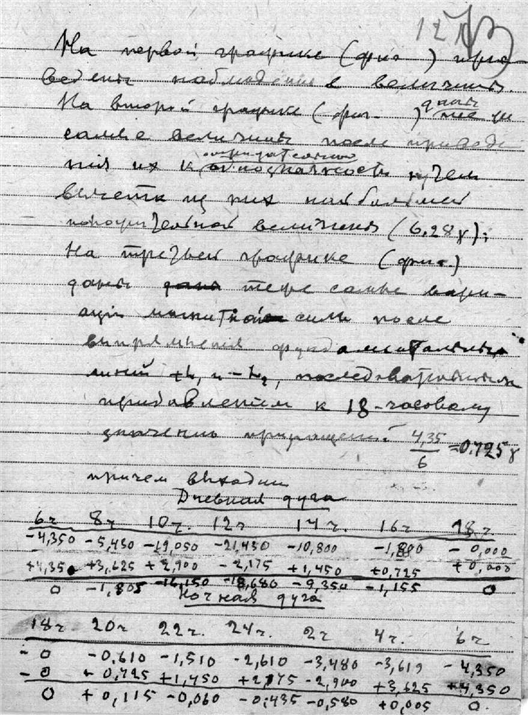 На первой графике (фиг. ) приве-
ведены наблюден е величины.
На второй графике (фиг. ) даны те же
самые величины после приведе-
ния их к отрицательно
путем
вычета из них наибольшей
положительной величины (6,28γ);
На третьей графике (фиг.)
даны те же самые вари-
ации магнитной силы после
выпрямления фундаментальных
линий +L, и -L₂, последовательным
прибавлением к 18-часовому
значению приращений 4,35/6 = 0.725γ
причем выходит
Дневная дуга
6ч 8ч 10ч. 12ч 14ч. 16ч 18ч
-4,350 -5,430 -19,050 -21,430 -10,800 -1,880 -0,000
+4,350 +3,625 +2,900 2,175 +1,450 +0,725 +0,000
0 -1,805 -16,150 -18,680 -9,350 -1,155 0
Ночная дуга
18ч 20ч 22ч. 24ч. 2ч 4ч. 6ч
-0 -0,610 -1,510 -2,610 -3,480 -3,619 -4,350
-0 +0,725 +1,450 +2,175 -2,900 +3,625 +4,350
0 +0,115 -0,060 -0,435 -0,580 +0,005 0.